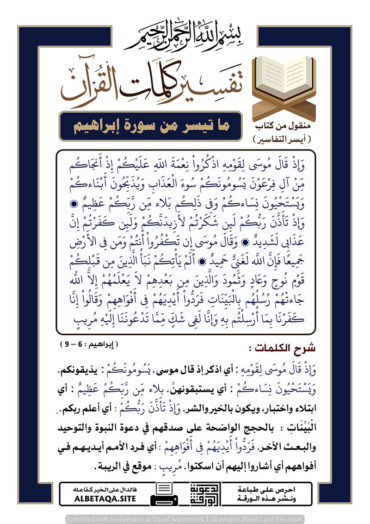 بسم الله الرحمن الرحيم
تفسير كلمات القرآن
منقول من كتاب
( أيسر التفاسير )
ما تيسر من سورة إبراهيم
وَإِذْ قَالَ مُوسَى لِقَوْمِهِ اذْكُرُوا نِعْمَةَ اللَّهِ عَلَيْكُمْ إِذْ أَنْجَاكُم
مِّنْ آلِ فِرْعَوْنَ يَسُومُونَكُمْ سُوءَ الْعَذَابِ وَيُذَبِّحُونَ أَبْنَاءكُمْ
وَيَسْتَحْيُونَ نِسَاءكُمْ وَفِي ذَلِكُم بَلاء مِّن رَّبِّكُمْ عَظِيمٌ ۞
وَإِذْ تَأَذَّنَ رَبُّكُمْ لَئِن شَكَرْتُمْ لأَزِيدَنَّكُمْ وَلَئِن كَفَرْتُمْ إِنَّ
عَذَابِي لَشَدِيدٌ ۞ وَقَالَ مُوسَى إِن تَكْفُرُوا أَنتُمْ وَمَن فِي الأَرْضِ
جَمِيعًا فَإِنَّ اللَّهَ لَغَنِيٌّ حَمِيدٌ ۞ أَلَمْ يَأْتِكُمْ نَبَأُ الَّذِينَ مِن قَبْلِكُمْ
قَوْمِ نُوحٍ وَعَادٍ وَثَمُودَ وَالَّذِينَ مِن بَعْدِهِمْ لاَ يَعْلَمُهُمْ إِلاَّ اللَّهُ
جَاءتْهُمْ رُسُلُهُم بِالْبَيِّنَاتِ فَرَدُّوا أَيْدِيَهُمْ فِي أَفْوَاهِهِمْ وَقَالُوا إِنَّا
كَفَرْنَا بِمَا أُرْسِلْتُم بِهِ وَإِنَّا لَفِي شَكٍّ مِّمَّا تَدْعُونَنَا إِلَيْهِ مُرِيبٍ
( إبراهيم : 6 – 9 )
شرح الكلمات :
وَإِذْ قَالَ مُوسَى لِقَوْمِهِ : أي اذكر إذ قال موسى. يَسُومُونَكُمْ : يذيقونكم.
وَيَسْتَحْيُونَ نِسَاءكُمْ : أي يستبقونهن. بلاء مِّن رَّبِّكُمْ عَظِيمٌ : أي
ابتلاء واختبار، ويكون بالخير والشر. وَإِذْ تَأَذَّنَ رَبُّكُمْ : أي أعلم ربكم.
الْبَيِّنَاتِ : بالحجج الواضحة على صدقهم في دعوة النبوة والتوحيد
والبعث الآخر. فَرَدُّوا أَيْدِيَهُمْ فِي أَفْوَاهِهِمْ : أي فرد الأمم أيديهم في
أفواههم أي أشاروا إليهم أن اسكتوا. مُرِيبٍ : موقع في الريبة.
احرص على طباعة
ونشر هذه الورقة
فالدال على الخير كفاعله
ALBETAQA.SITE
Protected with free version of Visual Watermark. Full version doesn't put this mark.